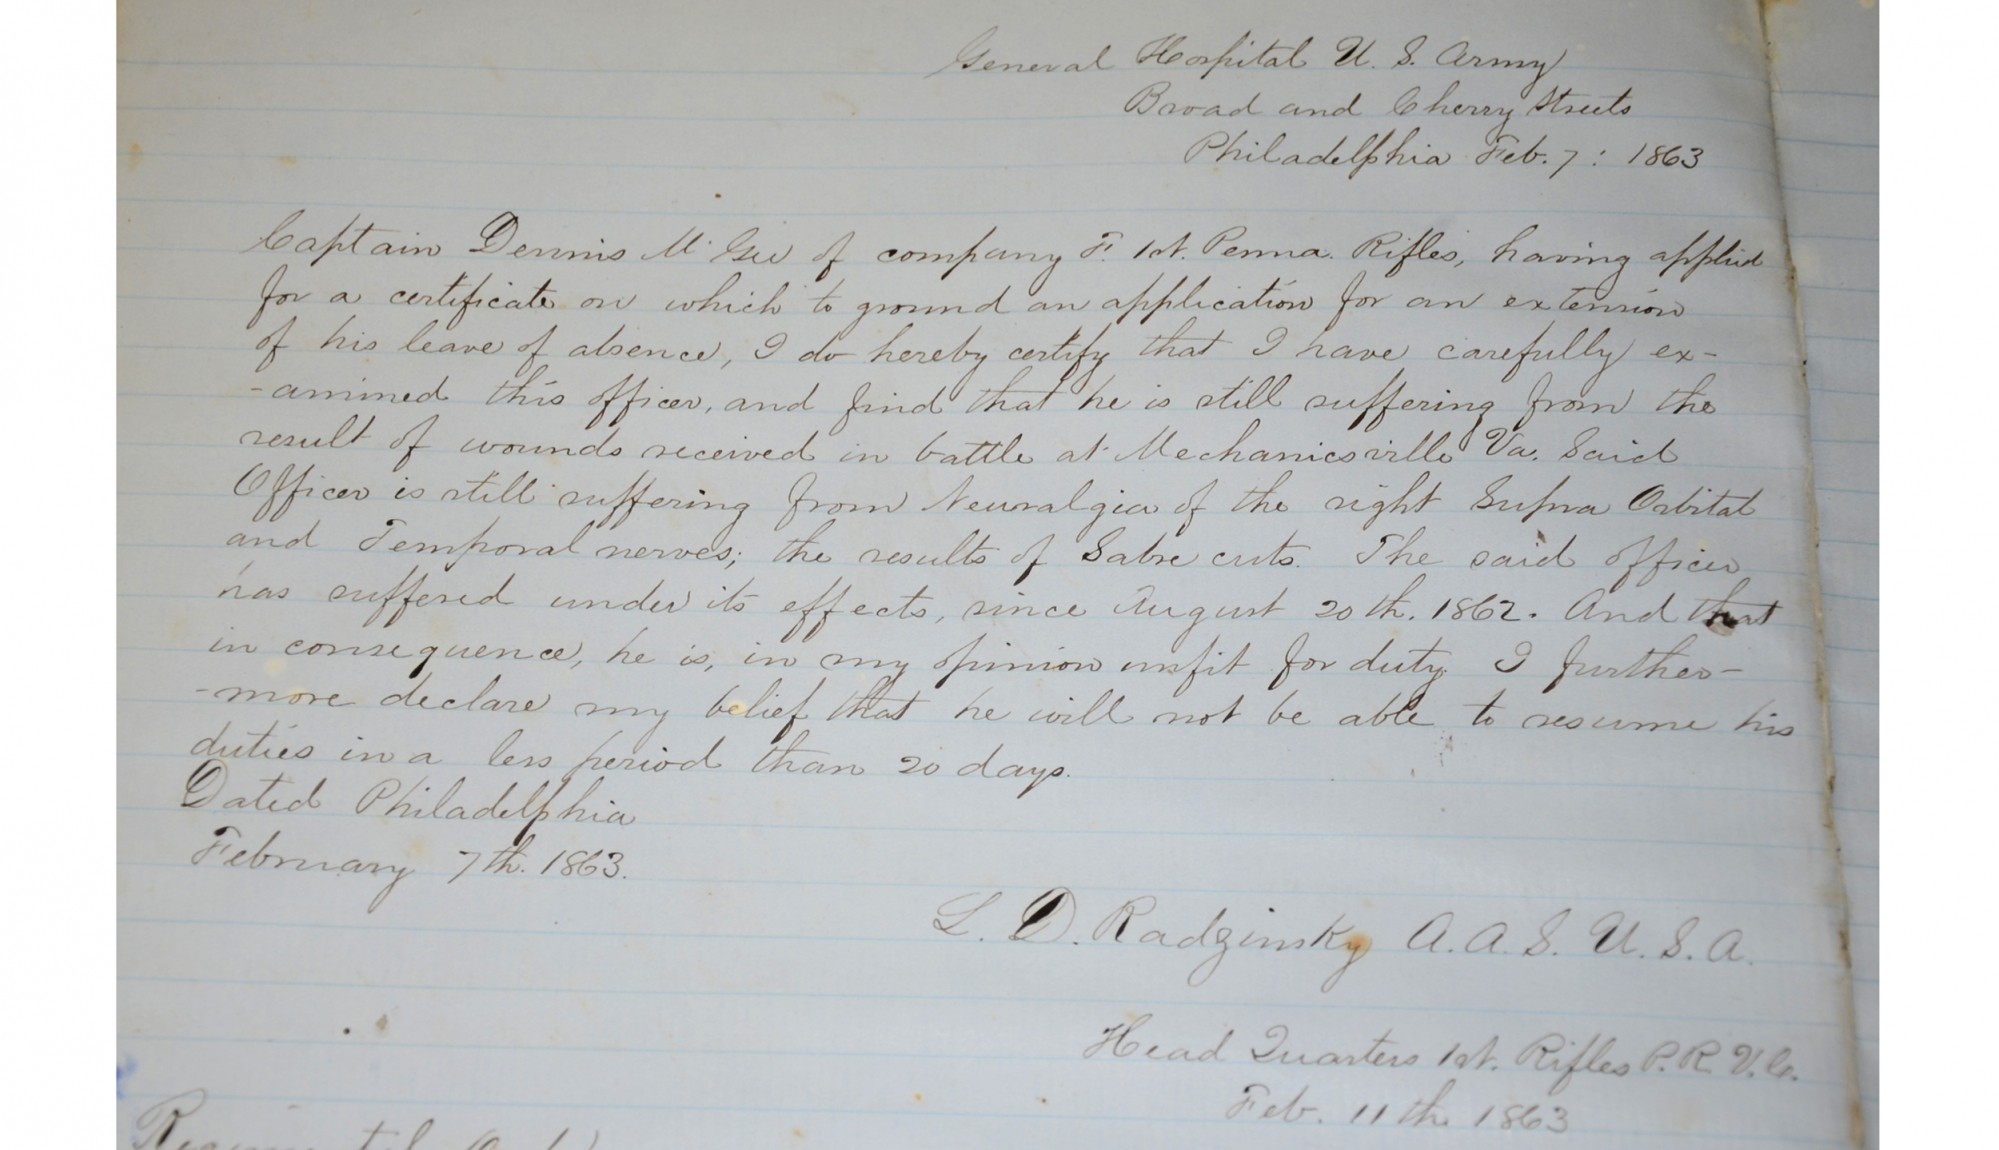 General Hospital U. S. Army
Broad and Cherry Streets
Philadelphia Feb. 7: 1863
Captain Dennis McGee of company F. 1st. Penna. Rifles, having applied
for a certificate on which to ground an application for an extension
of his leave of absence, I do hereby certify that I have carefully ex-
-amined this officer, and find that he is still suffering from the
result of wounds received in battle at Mechanicsville Va. Said
Officer is still suffering from Neuralgia of the right Supra Orbital
and Temporal nerves; the results of Sabre cuts. The said officer
has suffered under its effects, since August 20th. 1862. And that
in consequence, he is, in my opinion unfit for duty. I further-
-more declare my belief that he will not be able to resume his
duties in a less period than 20 days.
Dated Philadelphia
February 7th. 1863.
L. D. Radzinsky A. A. S. U. S. A.
Head Quarters 1st. Rifles P. R. V. C.
Feb. 11th 1863
Regimental